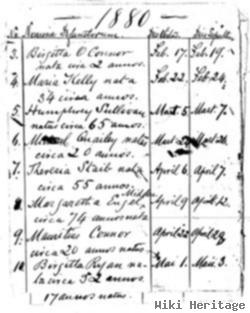 1880
No. Nomina Defunctorum
3. Birgitta O'Connor Feb. 17. Feb. 19.
nata circa 2 annos.
4. Maria Kelly nata Feb. 22. Feb. 24.
34 circa annos.
5. Humphrey Sullivan Mart. 5 Mart. 7.
natus circa 65 annos.
6. Quailey natus
circa 20 annos.
7. Theresia Staib nata April 6. April 7.
circa 55 annos.
8. Margaretha Engel April 9. April 12.
circa 74 annos nata
9. Mauritius Connor April 22
circa 20 annos natus.
10. Birgitta Ryan na- Mai 1. Mai 3.
ta circa 52 annos.
17 annos natus.
Wiki Heritage